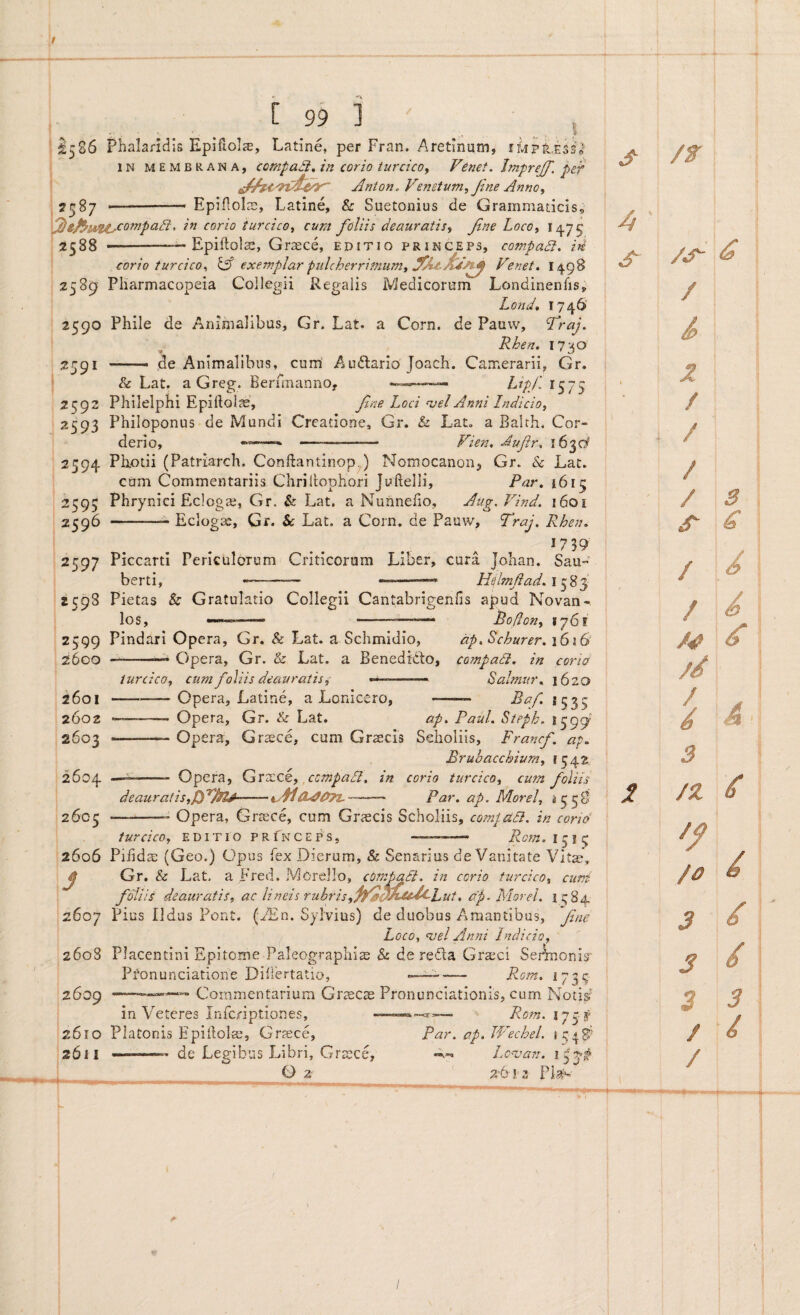 [ 99 ]
2586 Phalaridis Epiſtolæ, Latinè, per Fran. Aretinum, IMPRESS.
IN MEMBRANA, compact. in corio turcico, Venet. Impreſſ. per
Anton. Venetum, ſine Anno, 5 18
2587 ——— Epiſtolæ, Latinè, & Suetonius de Grammaticis,
compact. in corio turcico, cum foliis deauratis, ſine Loco, 1475 4
2588 ——— Epiſtolæ, Græcè, EDITIO PRINCEPS, compact. in
corio turcico, & exemplar pulcherrimum, The King Venet. 1498 5 15 6
2589 Pharmacopeia Collegii Regalis Medicorum Londinenſis,
Lond. 1746 1
2590 Phile de Animalibus, Gr. Lat. a Corn. de Pauw, Traj.
Rhen. 1730 6
2591 —— de Animalibus, cum Auctario Joach. Camerarii, Gr.
& Lat. a Greg. Berſmanno, —— Lipſ. 1575 2
2592 Philelphi Epiſtolæ, ſine Loci vel Anni Indicio, 1
2593 Philoponus de Mundi Creatione, Gr. & Lat. a Balth. Cor-
derio, —— ——— Vien. Auſtr. 1630 1
2594 Photii (Patriarch. Conſtantinop.) Nomocanon, Gr. & Lat.
cum Commentariis Chriſtophori Juſtelli, Par. 1615 1
2595 Phrynici Eclogæ, Gr. & Lat. a Nunneſio, Aug. Vind. 1601 1 3
2596 ——— Eclogæ, Gr. & Lat. a Corn. de Pauw, Traj. Rhen.
1739 5 6
2597 Piccarti Periculorum Criticorum Liber, curâ Johan. Sau-
berti, ——— ——— Helmſtad. 1583 1 6
2598 Pietas & Gratulatio Collegii Cantabrigenſis apud Novan-
los, ——— ——— Boſton, 1761 1 6
2599 Pindari Opera, Gr. & Lat. a Schmidio, ap. Schurer. 1616 14 6
2600 ——— Opera, Gr. & Lat. a Benedicto, compact. in corio
turcico, cum foliis deauratis, ——— Salmur. 1620 16
2601 ——— Opera, Latinè, a Lonicero, —— Baſ. 1535 1
2602 ——— Opera, Gr. & Lat. ap. Paul. Steph. 1599 6 6
2603 ——— Opera, Græcè, cum Græcis Scholiis, Francf. ap.
Brubacchium, 1542 3
2604 ——— Opera, Græcè, compact. in corio turcico, cum foliis
deauratis, Dr —— Mason —— Par. ap. Morel, 1558 2 12 6
2605 ——— Opera, Græcè, cum Græcis Scholiis, compact. in corio
turcico, EDITIO PRINCEPS, ——— Rom. 1515 19
2606 Piſidæ (Geo.) Opus ſex Dierum, & Senarius de Vanitate Vitæ,
Gr. & Lat. a Fred. Morello, compact. in corio turcico, cum
foliis deauratis, ac lineis rubris, Lut. ap. Morel. 1584 10 6
2607 Pius IIdus Pont. (Æn. Sylvius) de duobus Amantibus, ſine
Loco, vel Anni Indicio, 3 6
2608 Placentini Epitome Paleographiæ & de recta Græci Sermonis
Pronunciatione Diſſertatio, ——— Rom. 1735 3 6
2609 ——— Commentarium Græcæ Pronunciationis, cum Notis
in Veteres Inſcriptiones, ——— Rom. 1751 3 3
2610 Platonis Epiſtolæ, Græcè, Par. ap. Wechel. 1548 1 6
2611 ——— de Legibus Libri, Græcè, —— Lovan. 1531 1
O 2 2612 Pla-